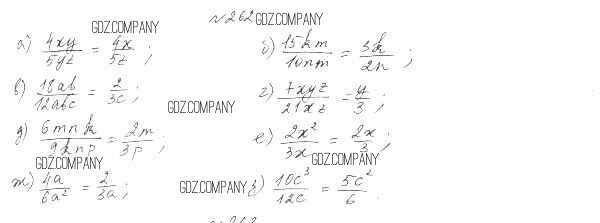 №262 GDZ.COMPANY
GDZ.COMPANY
а) 4xy/5yz = 4x/5z ; б) 15km/10nm = 3k/2n ;
в) 18ab/12abc = 2/3c ; г) 7xyz/21xz = y/3 ;
GDZ.COMPANY
д) 6mnk/9knp = 2m/3p ; е) 2x²/3x = 2x/3 ;
GDZ.COMPANY GDZ.COMPANY
ж) 4a/6a² = 2/3a ; GDZ.COMPANY з) 10c³/12c = 5c²/6 .